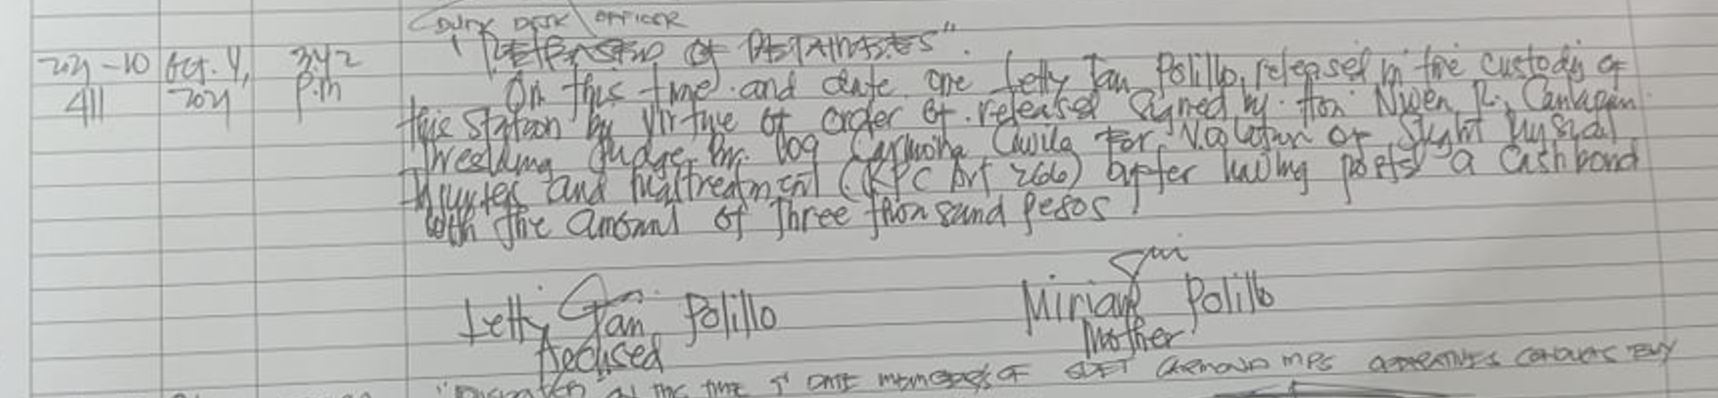 DUTY DESK OFFICER
" OF DETAINEES".
2021-10 Oct. 4, 342 On this time and date one Letty Jan Polillo, released in the custody of
411 2021 p.m this Station by virtue of order of released signed by Hon. Niven R. Canlapan
Presiding Judge, Br. 109 Carmona Cavite for Violation of Slight Physical
Injuries and Maltreatment (RPC Art 266) after having posts a Cashbond
with the amount of Three thousand pesos.
Letty Jan Polillo Miriam Polillo
Accused Mother
time & DATE members OF MPS OPERATIVES